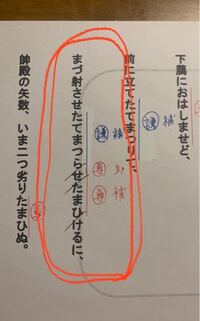 下﨟におはしませど、
㊟護 補
前に立てたてまつりて、
護 補
尊 助
尊 補
まづ射させたてまつらせたまひけるに、
帥殿の矢数、いま二つ劣りたまひぬ。
尊